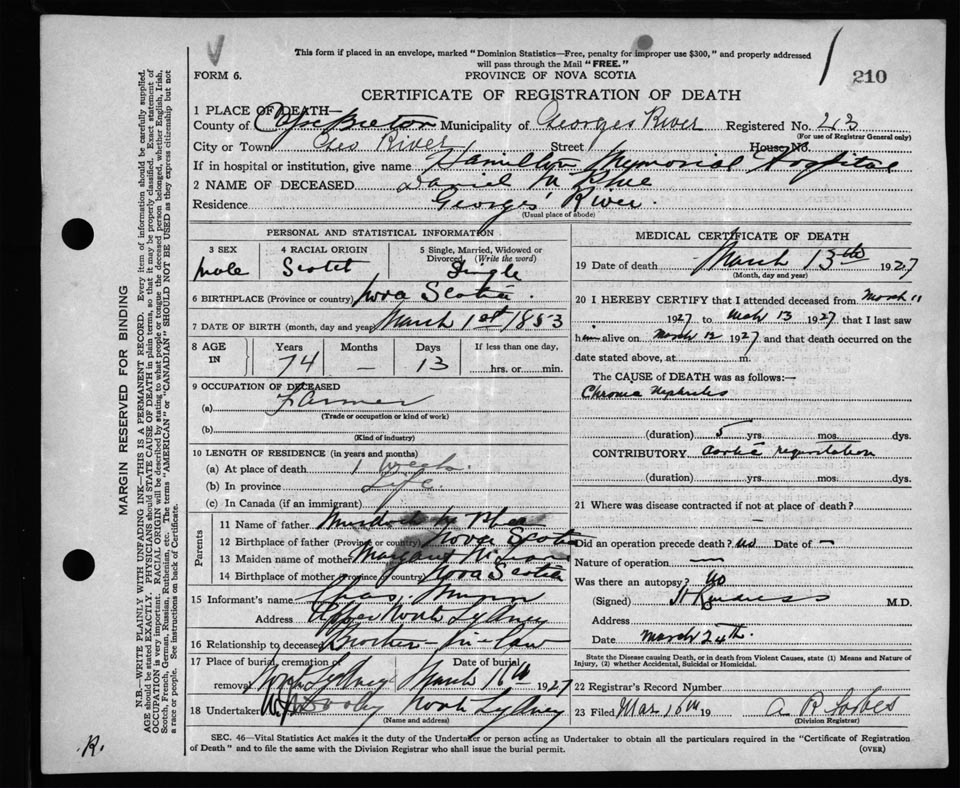 This form if placed in an envelope, marked "Dominion Statistics—Free, penalty for improper use $300," and properly addressed
will pass through the Mail "FREE."
FORM 6.
PROVINCE OF NOVA SCOTIA
210
CERTIFICATE OF REGISTRATION OF DEATH
1 PLACE OF DEATH—
County of Cape Breton Municipality of Georges River Registered No. 263
(For use of Registrar General only)
City or Town Geo River Street House No.
If in hospital or institution, give name Hamilton Memorial Hospital
2 NAME OF DECEASED Daniel
Residence Georges' River.
(Usual place of abode)
PERSONAL AND STATISTICAL INFORMATION
3 SEX 4 RACIAL ORIGIN 5 Single, Married, Widowed or Divorced (Write the word)
male Scotch Single
6 BIRTHPLACE (Province or country) Nova Scotia.
7 DATE OF BIRTH (month, day and year) March 1st 1853
8 AGE IN Years Months Days If less than one day,
74 — 13 hrs. or min.
9 OCCUPATION OF DECEASED
(a) Farmer
(Trade or occupation or kind of work)
(b)
(Kind of industry)
10 LENGTH OF RESIDENCE (in years and months)
(a) At place of death 1 Week.
(b) In province Life.
(c) In Canada (if an immigrant)
Parents
11 Name of father Murdoch
12 Birthplace of father (Province or country) Nova Scotia
13 Maiden name of mother Margaret
14 Birthplace of mother (Province or country) Nova Scotia
15 Informant's name Chas.
Address Upper North Sydney
16 Relationship to deceased Brother-in-law
17 Place of burial, cremation or removal North Sydney Date of burial March 16th 1927
18 Undertaker North Sydney
(Name and address)
MEDICAL CERTIFICATE OF DEATH
19 Date of death March 13th 1927
(Month, day and year)
20 I HEREBY CERTIFY that I attended deceased from March 11
1927 to Mch 13 1927 that I last saw
him alive on March 12 1927 and that death occurred on the
date stated above, at m.
The CAUSE of DEATH was as follows:—
Chronic Nephritis
(duration) 5 yrs. mos. dys.
CONTRIBUTORY aortic regurgitation
(duration) yrs. mos. dys.
21 Where was disease contracted if not at place of death?
—
Did an operation precede death? no Date of —
Nature of operation —
Was there an autopsy? No
(Signed) M.D.
Address
Date March 24th.
State the Disease Causing Death, or in death from Violent Causes, state (1) Means and Nature of
Injury, (2) whether Accidental, Suicidal or Homicidal.
22 Registrar's Record Number
23 Filed Mar 16th 19 A R Forbes
(Division Registrar)
SEC. 46—Vital Statistics Act makes it the duty of the Undertaker or person acting as Undertaker to obtain all the particulars required in the "Certificate of Registration
of Death" and to file the same with the Division Registrar who shall issue the burial permit.
(OVER)
MARGIN RESERVED FOR BINDING
N.B.—WRITE PLAINLY WITH UNFADING INK—THIS IS A PERMANENT RECORD. Every item of information should be carefully supplied.
AGE should be stated EXACTLY. PHYSICIANS should STATE CAUSE OF DEATH in plain terms, so that it may be properly classified. Exact statement of
OCCUPATION is very important. RACIAL ORIGIN will be described by stating to what people or tongue the deceased person belonged, whether English, Irish,
Scotch, French, German, Russian, Ruthenian, etc. The terms "AMERICAN" or "CANADIAN" SHOULD NOT BE USED as they express citizenship but not
a race or people. See instructions on back of Certificate.
R.